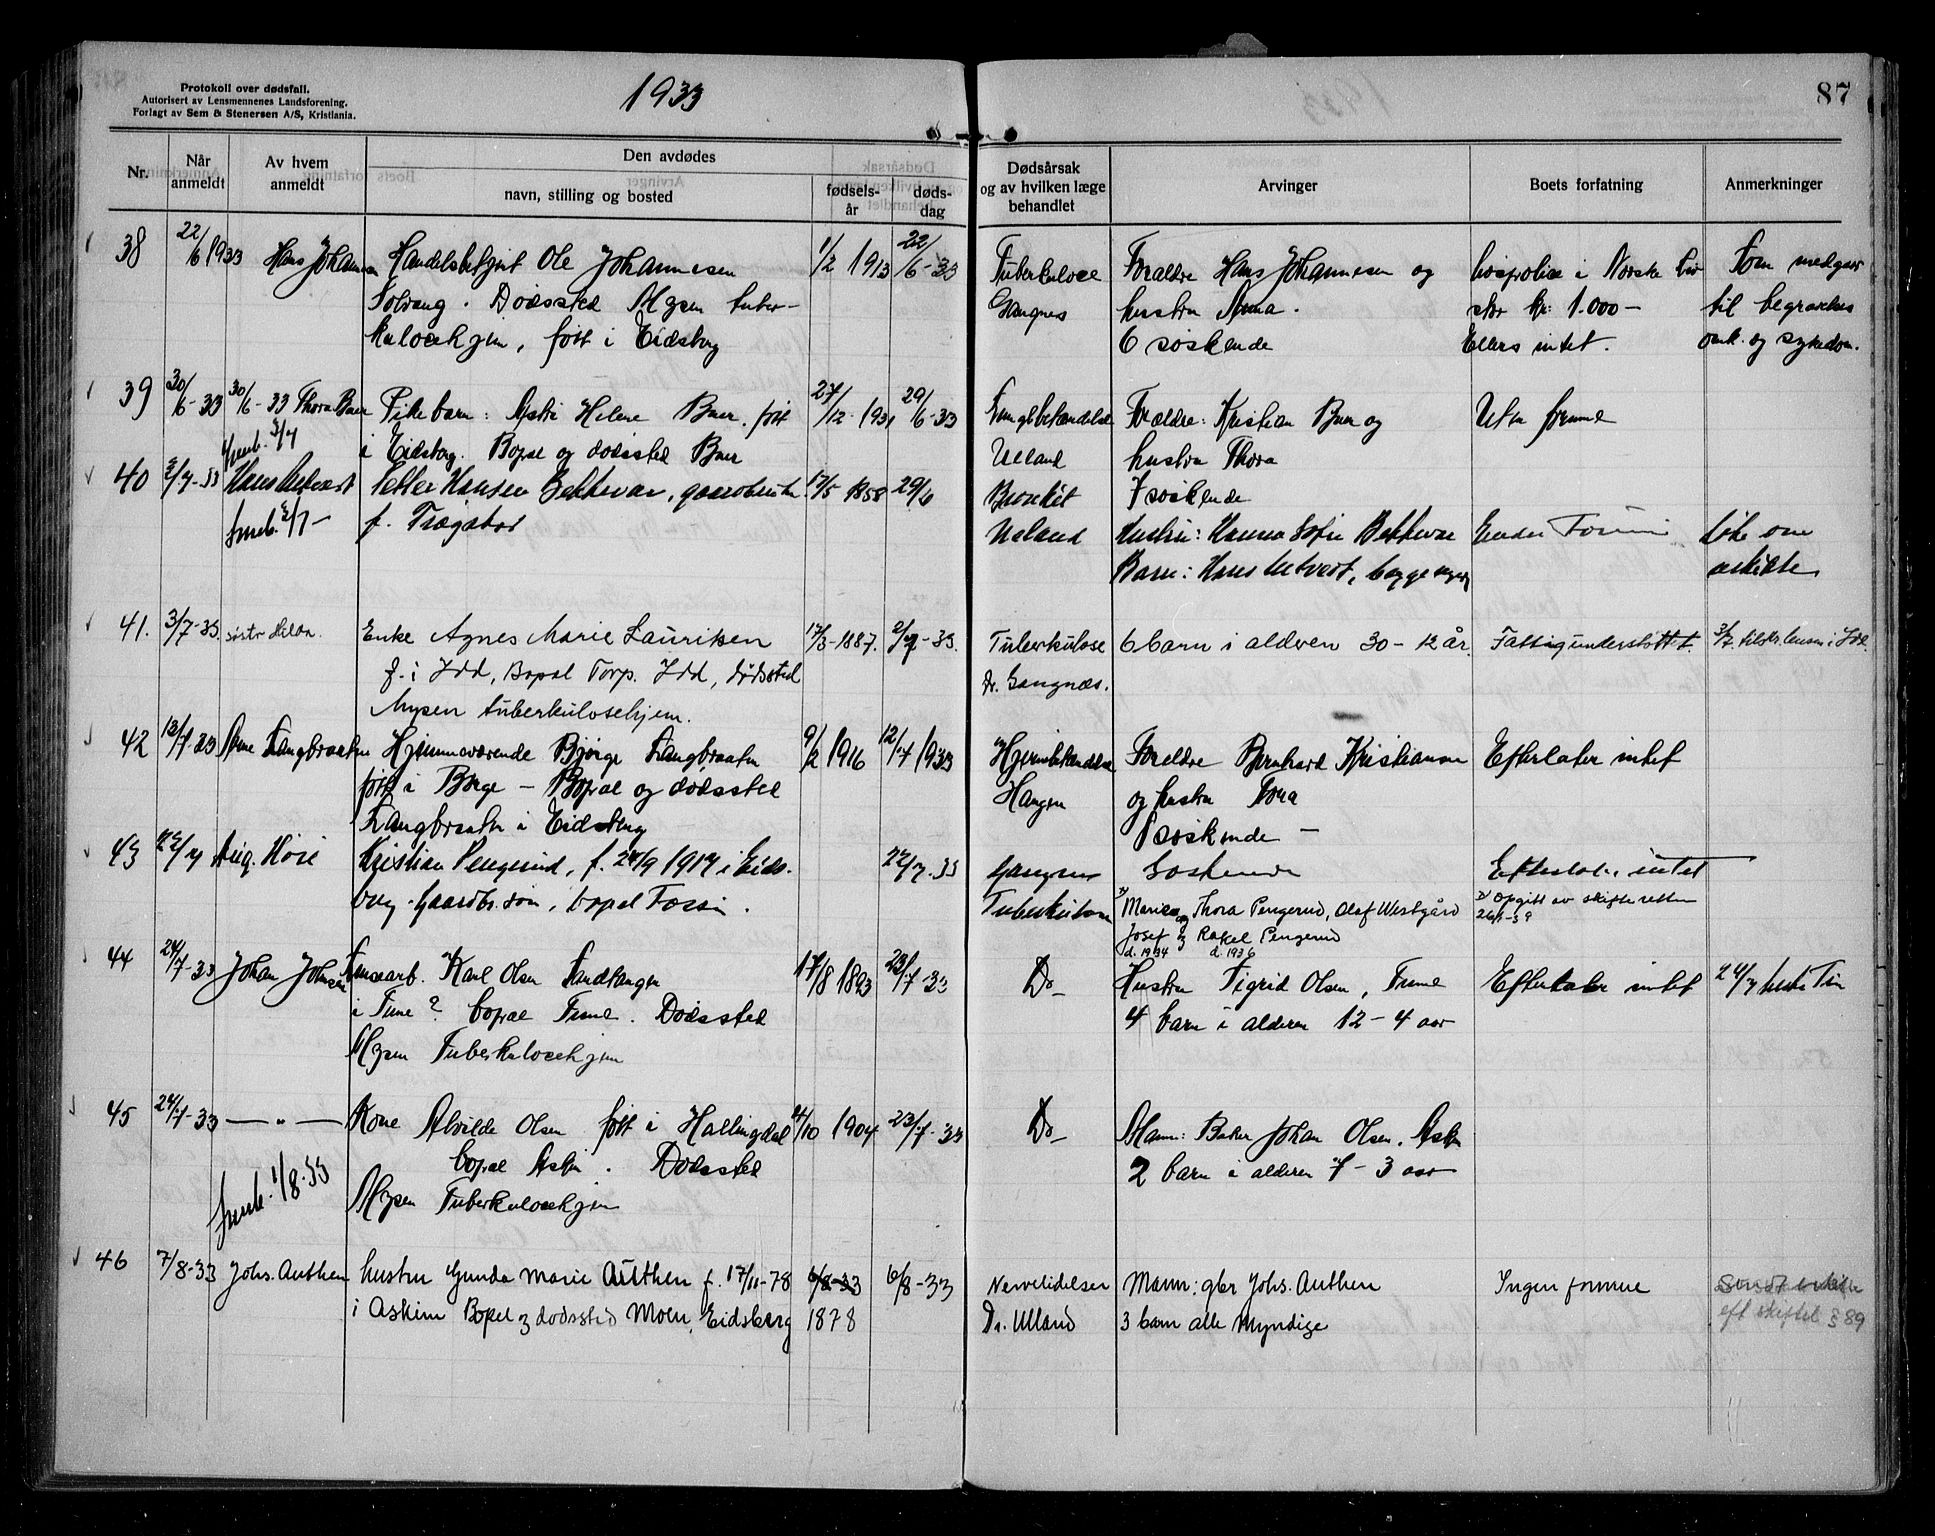 Protokoll over dødsfall.
Autorisert av Lensmennenes Landsforening.
Forlagt av Sem & Stenersen A/S, Kristiania.
1933
87
Nr.
Når anmeldt
Av hvem anmeldt
Den avdødes
navn, stilling og bosted
fødsels-år
døds-dag
Dødsårsak og av hvilken læge behandlet
Arvinger
Boets forfatning
Anmerkninger
38 22/6 1933 Hans Johannesen Handelsbetjent Ole Johannesen 1/2 1913 22/6-33 Tuberkulose Foraldre Hans Johannesen og Livspolise i Norske Liv Som medgaar
Solvang. Dødssted Mysen tuber- Gangnes hustru Anna. stor kr: 1.000- til begravelses
kulosehjem, født i Eidsberg 6 søskende Ellers intet. omk. og sykedom.
39 30/6-33 30/6-33 Thora Buer Pikebarn: Astri Helene Buer født 27/12-1931 29/6-33 Lungebetændelse Foraldre: Kristian Buer og Uten formue
i Eidsberg. Bopæl og dødssted Buer Ulland hustru Thora
7 søskende
40 2/7-33 Hans Petter Hansen Bekkevar, 17/5 1858 29/6 Bronkit
f. Trøgstad Ulland Hustru: Hanna Sofie Bekkevar
Barn: Hans
41. 3/7-33. søstr Hilda. Enke Agnes Marie Lauritsen 17/3-1887. 2/7-33. Tuberkulose 6 barn i alderen 30-12 år. Fattigunderstøttet. 3/7 til i Idd.
f. i Idd, Bopæl Torp. Idd, dødssted Dr. Gangnæs.
Mysen tuberkulosehjem.
42 13/7-33 Langbraaten Hjemmeværende Bjørge Langbraaten 9/2 1916 12/7 1933 Hjernebetændelse Foreldre Bernhard Kristiansen Efterlater intet
født i Borge - Bopæl og dødssted Haugen og hustru
Langbraaten i Eidsberg søskende -
43 22/7 Aug. Kristian Pengerud, f. 24/9 1917 i Eids- 22/7-33 Gangnes Søskende Efterlat. intet
berg. Gaardbr. søn, bopæl Tuberkulose Marie og Thora Pengerud, Olaf Westgård Opgitt av skifteretten
Josef og Rakel Pengerud 26/1-39
d. 1934 d. 1936
44 24/7-33 Johan Johnsen Karl Olsen Sandtangen 17/8 1893 23/7-33 Do- Hustru Sigrid Olsen, Tune Efterlater intet 24/7
i Tune? bopæl Tune. Dødssted 4 barn i alderen 12-4 aar
Mysen Tuberkulosehjem
45 24/7-33 — " — Kone Alvilde Olsen født i Hallingdal 4/10 1904 23/7-33 Do- Mann: Baker Johan Olsen, Askim
bopæl Askim. Dødssted 2 barn i alderen 7-3 aar
1/8-33 Mysen Tuberkulosehjem
46 7/8-33 Johs. Authen hustru Gunda Marie Authen f. 17/11-78 6/8-33 6/8-33 Nervelidelser Mann: gbr Johs. Authen Ingen formue
i Askim Bopel og dødssted Moen, Eidsberg 1878 Dr. Ulland 3 barn alle Myndige eft skiftel § 89